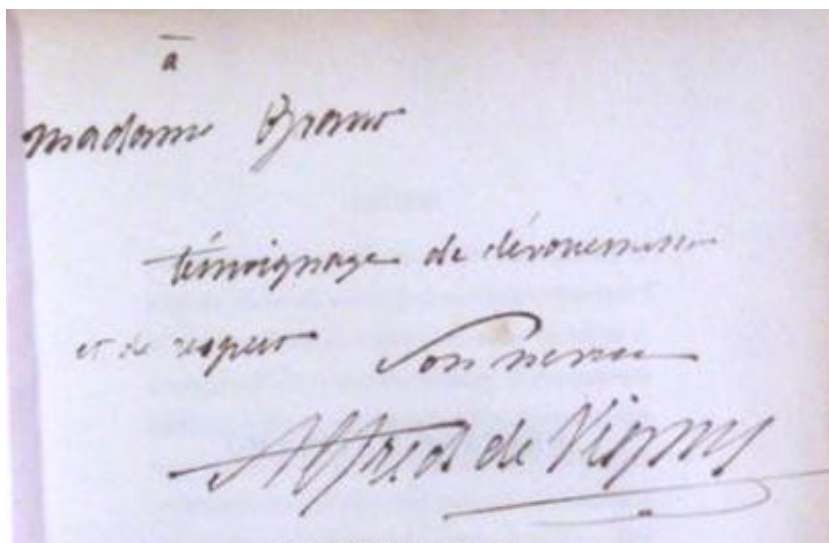 à
madame
témoignage de dévouement
et de respect Son neveu
Alfred de Vigny